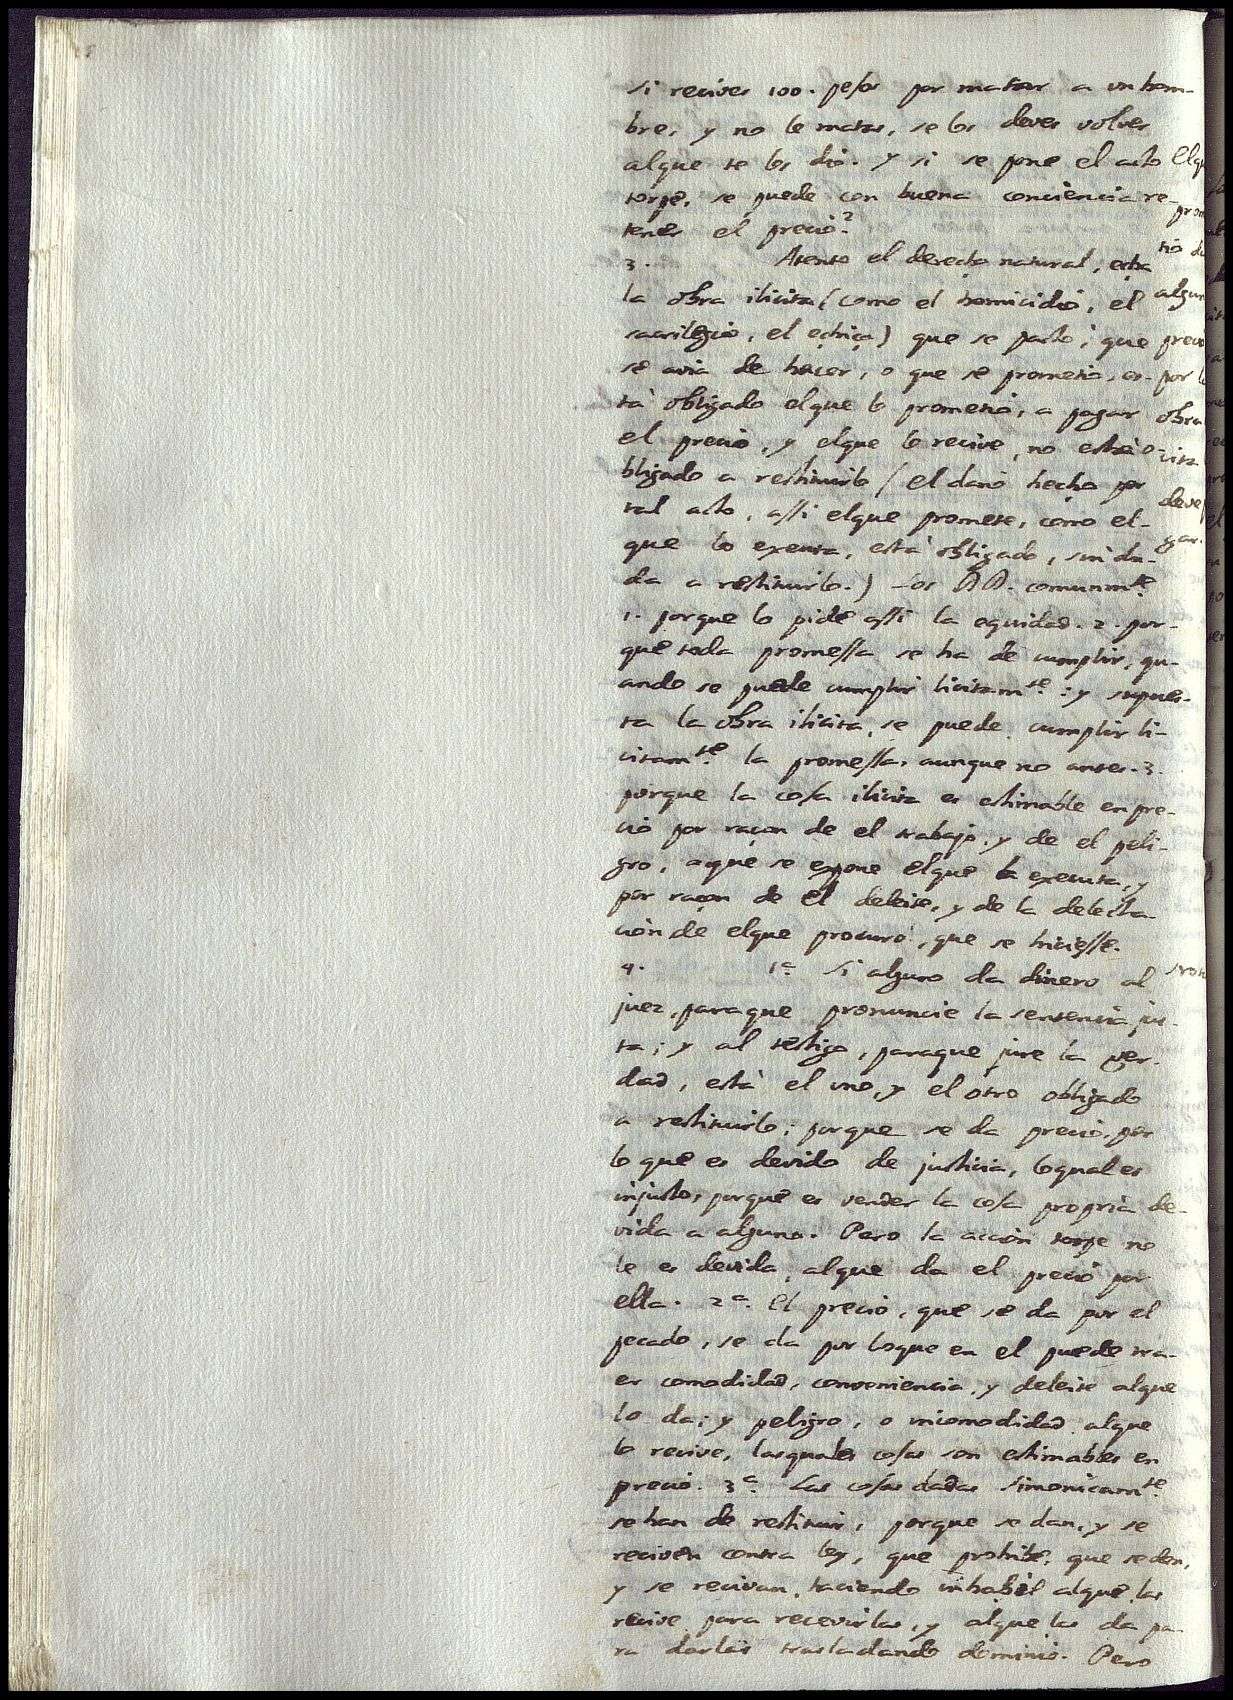 si recives 100. pesos por matar a un hom-
bre, y no le matas, se los deves volver
alque te los dió. Y si se pone el acto
torpe, se puede con buena conciencia re-
tener el precio?
3. Atento el derecho natural, echa
la obra ilicita (como el homicidio, el
sacrilegio, el ) que se pacto, que
se avia de hacer, o que se prometio, es-
tà obligado elque lo prometió, a pagar
el precio, y elque lo recive, no està o-
bligado a restituirlo (el daño hecho por
tal acto, assi elque promete, como el-
que lo executa, està obligado, sin du-
da a restituirlo.) Los DD. comunmte.
1. porque lo pide assi la equidad. 2. por-
que toda promessa se ha de cumplir, qu-
ando se puede cumplir licitamte.: y supues-
ta la obra ilicita, se puede cumplir li-
citamte. la promessa, aunque no antes. 3.
porque la cosa ilicita es estimable en pre-
cio por raçon de el trabajo, y de el peli-
gro, aque se expone elque la executa, y
por raçon de el deleite, y de la delecta-
ción de elque procuró, que se hiciesse.
4. 1a. Si alguno da dinero al
juez, paraque pronuncie la sentencia jus-
ta; y al testigo, paraque jure la ver-
dad, està el uno, y el otro obligado
a restituirlo; porque se da precio por
lo que es devido de justicia, loqual es
injusto, porque es vender la cosa propria de-
vida a alguno. Pero la acción torpe no
le es devida, alque da el precio por
ella. 2a. El precio, que se da por el
pecado, se da por loque en el puede tra-
er comodidad, conveniencia, y deleite alque
lo da; y peligro, o incomodidad alque
lo recive, lasquales cosas son estimables en
precio. 3a. Las cosas dadas simonicamte.
se han de restituir, porque se dan, y se
reciven contra ley, que prohibe, que se den,
y se recivan, haciendo inhabil alque las
recive para recevirlas, y alque las da pa-
ra darlas trasladando dominio. Pero
algun
precio
por
obra
deve